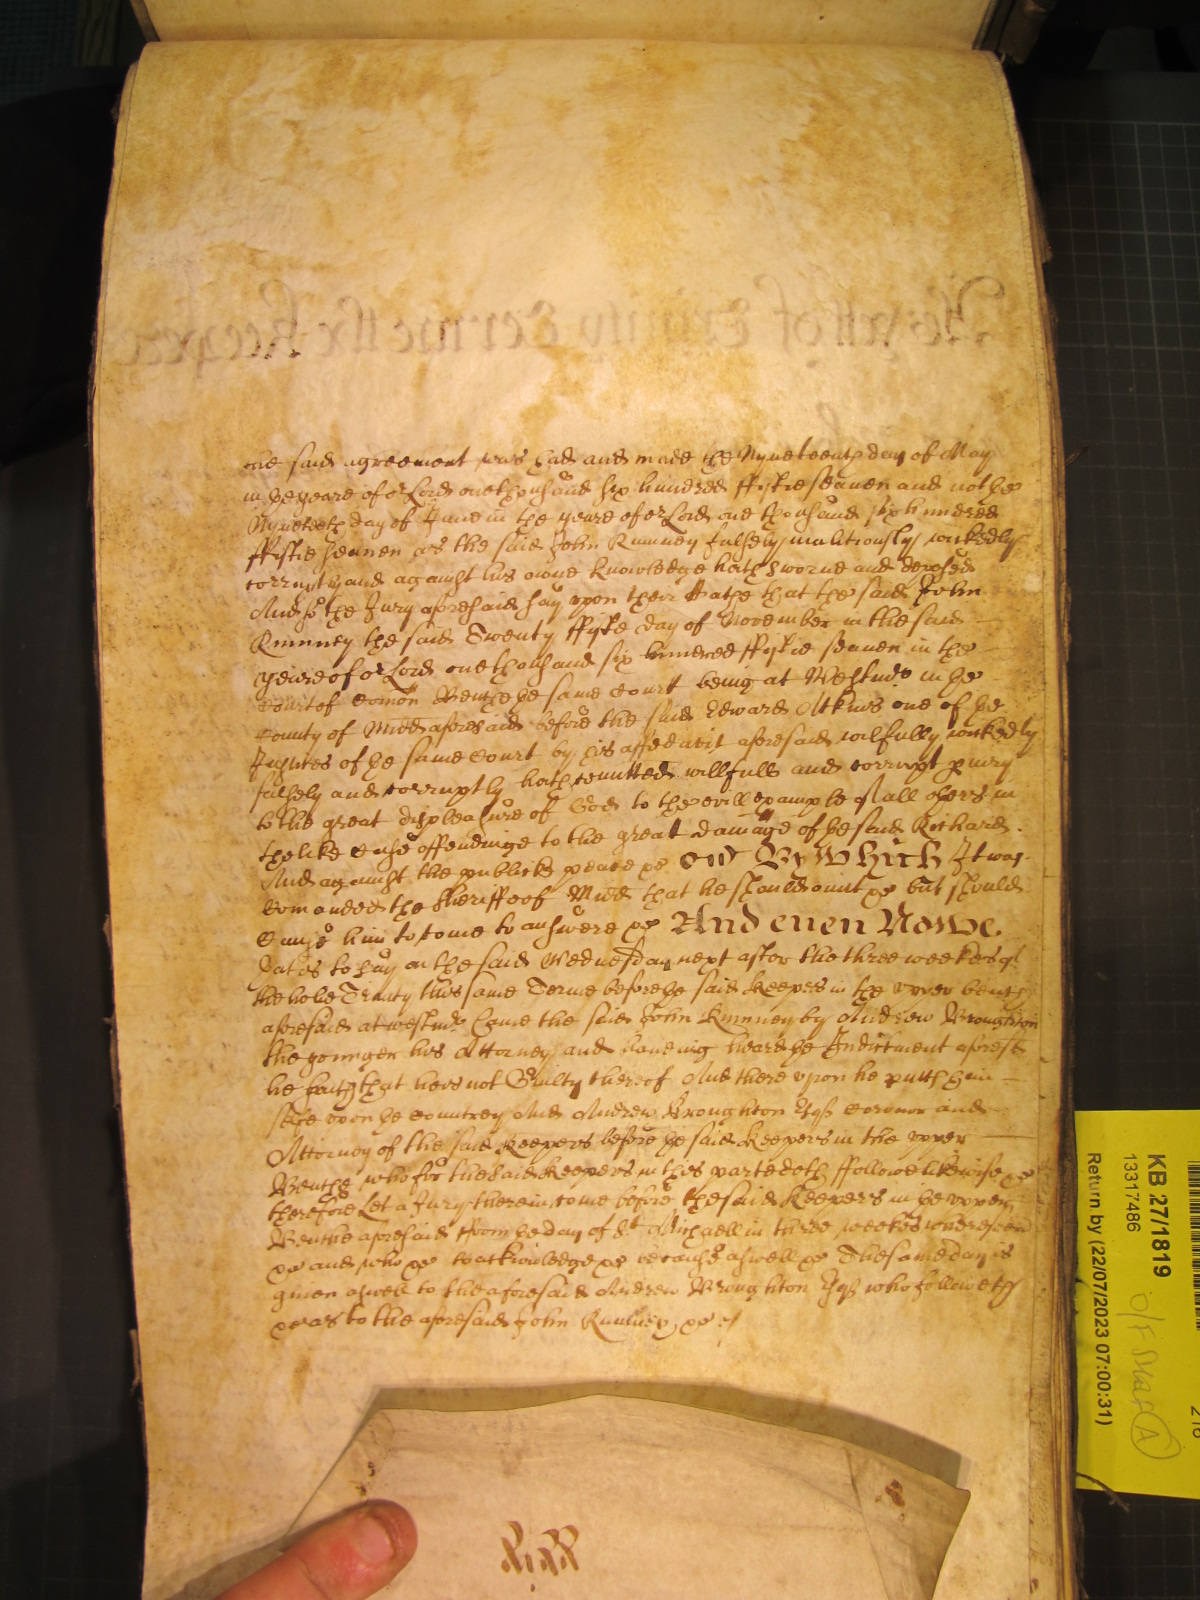 the said agreement was had and made the Nyneteenth day of May
in the yeare of or Lord one thousand six hundred ffiftie seaven and not the
Nyneteeth day of June in the yeare of or Lord one thousand six hundred
ffiftie seaven as the said John Rumney falsely malitiously wickedly
corruptly and against his owne knowledge hath sworne and deposed
And so the Jury aforesaid say vpon their Oathe that the said John
Rumney the said Twenty ffifte day of November in the said
yeare of or Lord one thousand six hundred ffiftie seaven in the
Court of Comon Benche the same Court being at Westmr in the
County of Midd aforesaid before the said Edward Atkins one of the
Justices of the same Court by his affedavit aforesaid wilfully wickedly
falsely and corruptly hath comitted willfull and corrupt piury
to the great displeasure of God to the evill example of all others in
the like case offendinge to the great damage of the said Richard
And against the publick peace &c By Which It was
Comanded the Sheriffe of Midd that he should omit &c but should
Cause him to come to answere &c And even Nowe
that is to say on the said Wednesday next after the three weekes of
the holie Trinity this same Terme before the said Keepers in the vpper bench
aforesaid at Westmr Came the said John Rumney by Andrew Broughton
the younger his Attorney and haveing heard the Indictment aforesd
he saith that he is not Guilty thereof And there vpon he putts him
selfe vpon the Countrey And Andrew Broughton Esqr Coronor and
Attorney of the said Keepers before the said Keepers in the vpper
Benche who for the said Keepers in this parte doth ffollowe likewise &c
therefore Let a Jury therein come before the said Keepers in the vpper
Benche aforesaid ffrom the day of St Michaell in three weekes wheresoever
&c and who &c to acknowledge &c because aswell &c The same day is
given aswell to the aforesaid Andrew Broughton Esqr who followeth
&c as to the aforesaid John Rumney &c
KB 27/1819
13317486
Return by (22/07/2023 07:00:31)
A